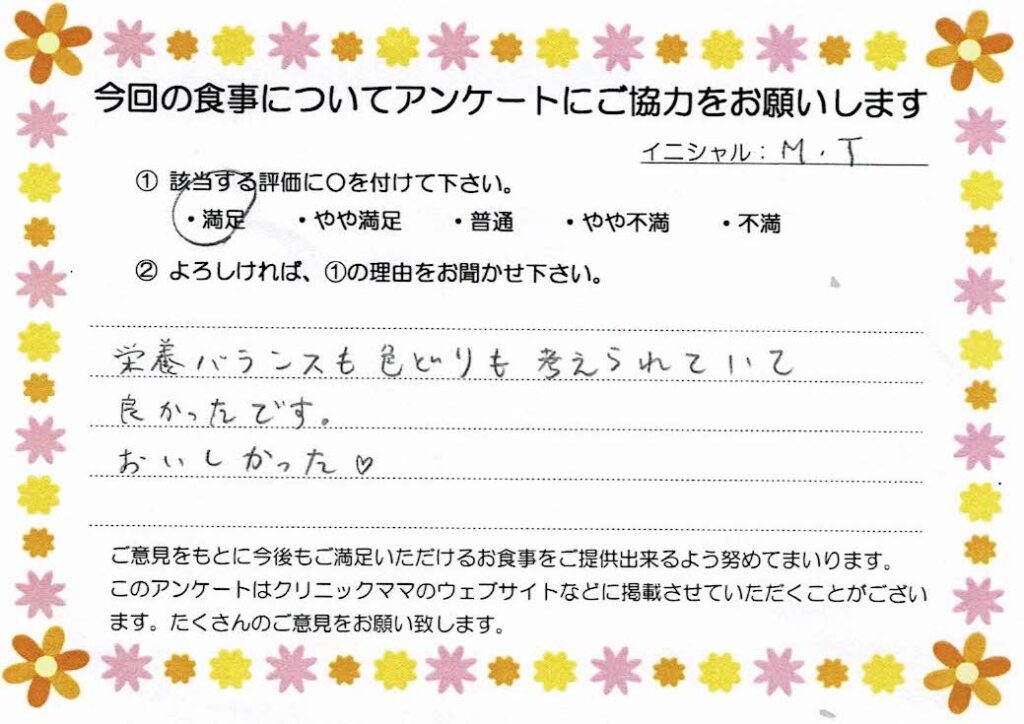 今回の食事についてアンケートにご協力をお願いします
イニシャル：M．T
① 該当する評価に〇を付けて下さい。
・満足 ・やや満足 ・普通 ・やや不満 ・不満
② よろしければ、①の理由をお聞かせ下さい。
栄養バランスも色どりも考えられていて
良かったです。
おいしかった♡
ご意見をもとに今後もご満足いただけるお食事をご提供出来るよう努めてまいります。
このアンケートはクリニックママのウェブサイトなどに掲載させていただくことがござい
ます。たくさんのご意見をお願い致します。